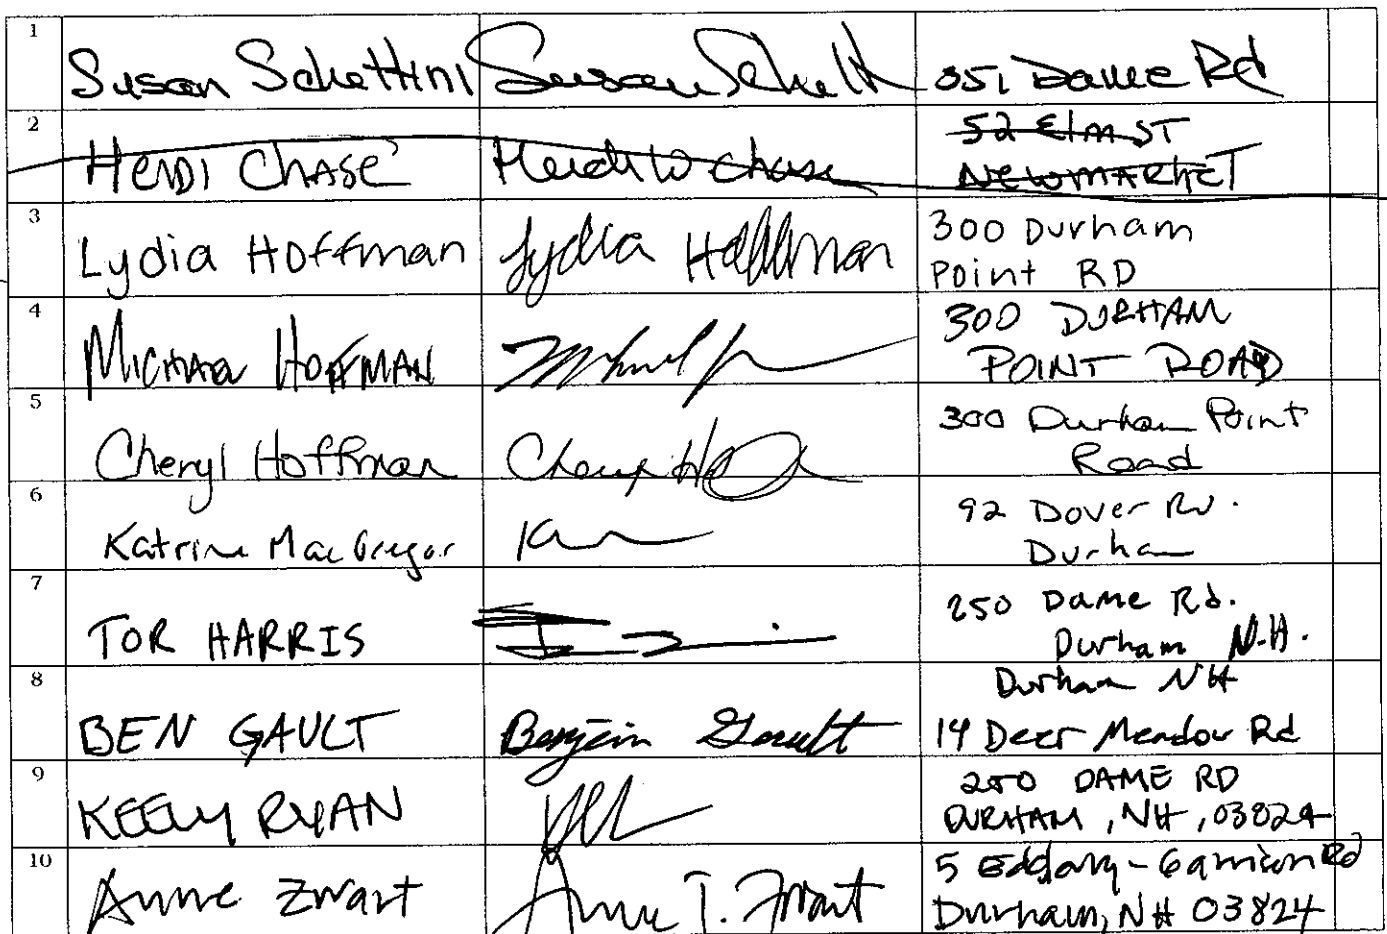 1 Susan Schettini Susan Schett 051 Dame Rd
2 HEIDI CHASE Heidi W Chase 52 Elm ST
NEWMARKET
3 Lydia Hoffman Lydia Hoffman 300 Durham
Point RD
4 MICHAEL HOFFMAN 300 DURHAM
POINT ROAD
5 Cheryl Hoffman 300 Durham Point
Road
6 Katrine MacGregor 92 Dover Rd.
Durham
7 TOR HARRIS 250 Dame Rd.
Durham N.H.
8 Durham NH
BEN GAULT Benjamin Gault 14 Deer Meadow Rd
9 KEELY RYAN 250 DAME RD
DURHAM, NH, 03824
10 Anne Zwart Anne T. Zwart 5 - Garrison Rd
Durham, NH 03824